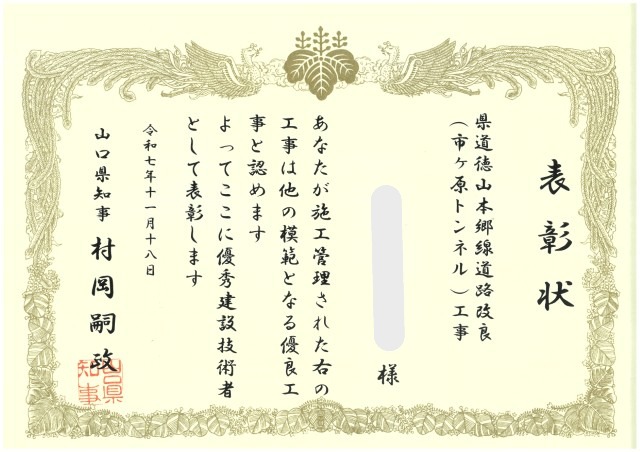 表彰状
県道徳山本郷線道路改良
（市ヶ原トンネル）工事
様
あなたが施工管理された右の
工事は他の模範となる優良工
事と認めます
よってここに優秀建設技術者
として表彰します
令和七年十一月十八日
山口県知事 村岡嗣政
山口県
知事